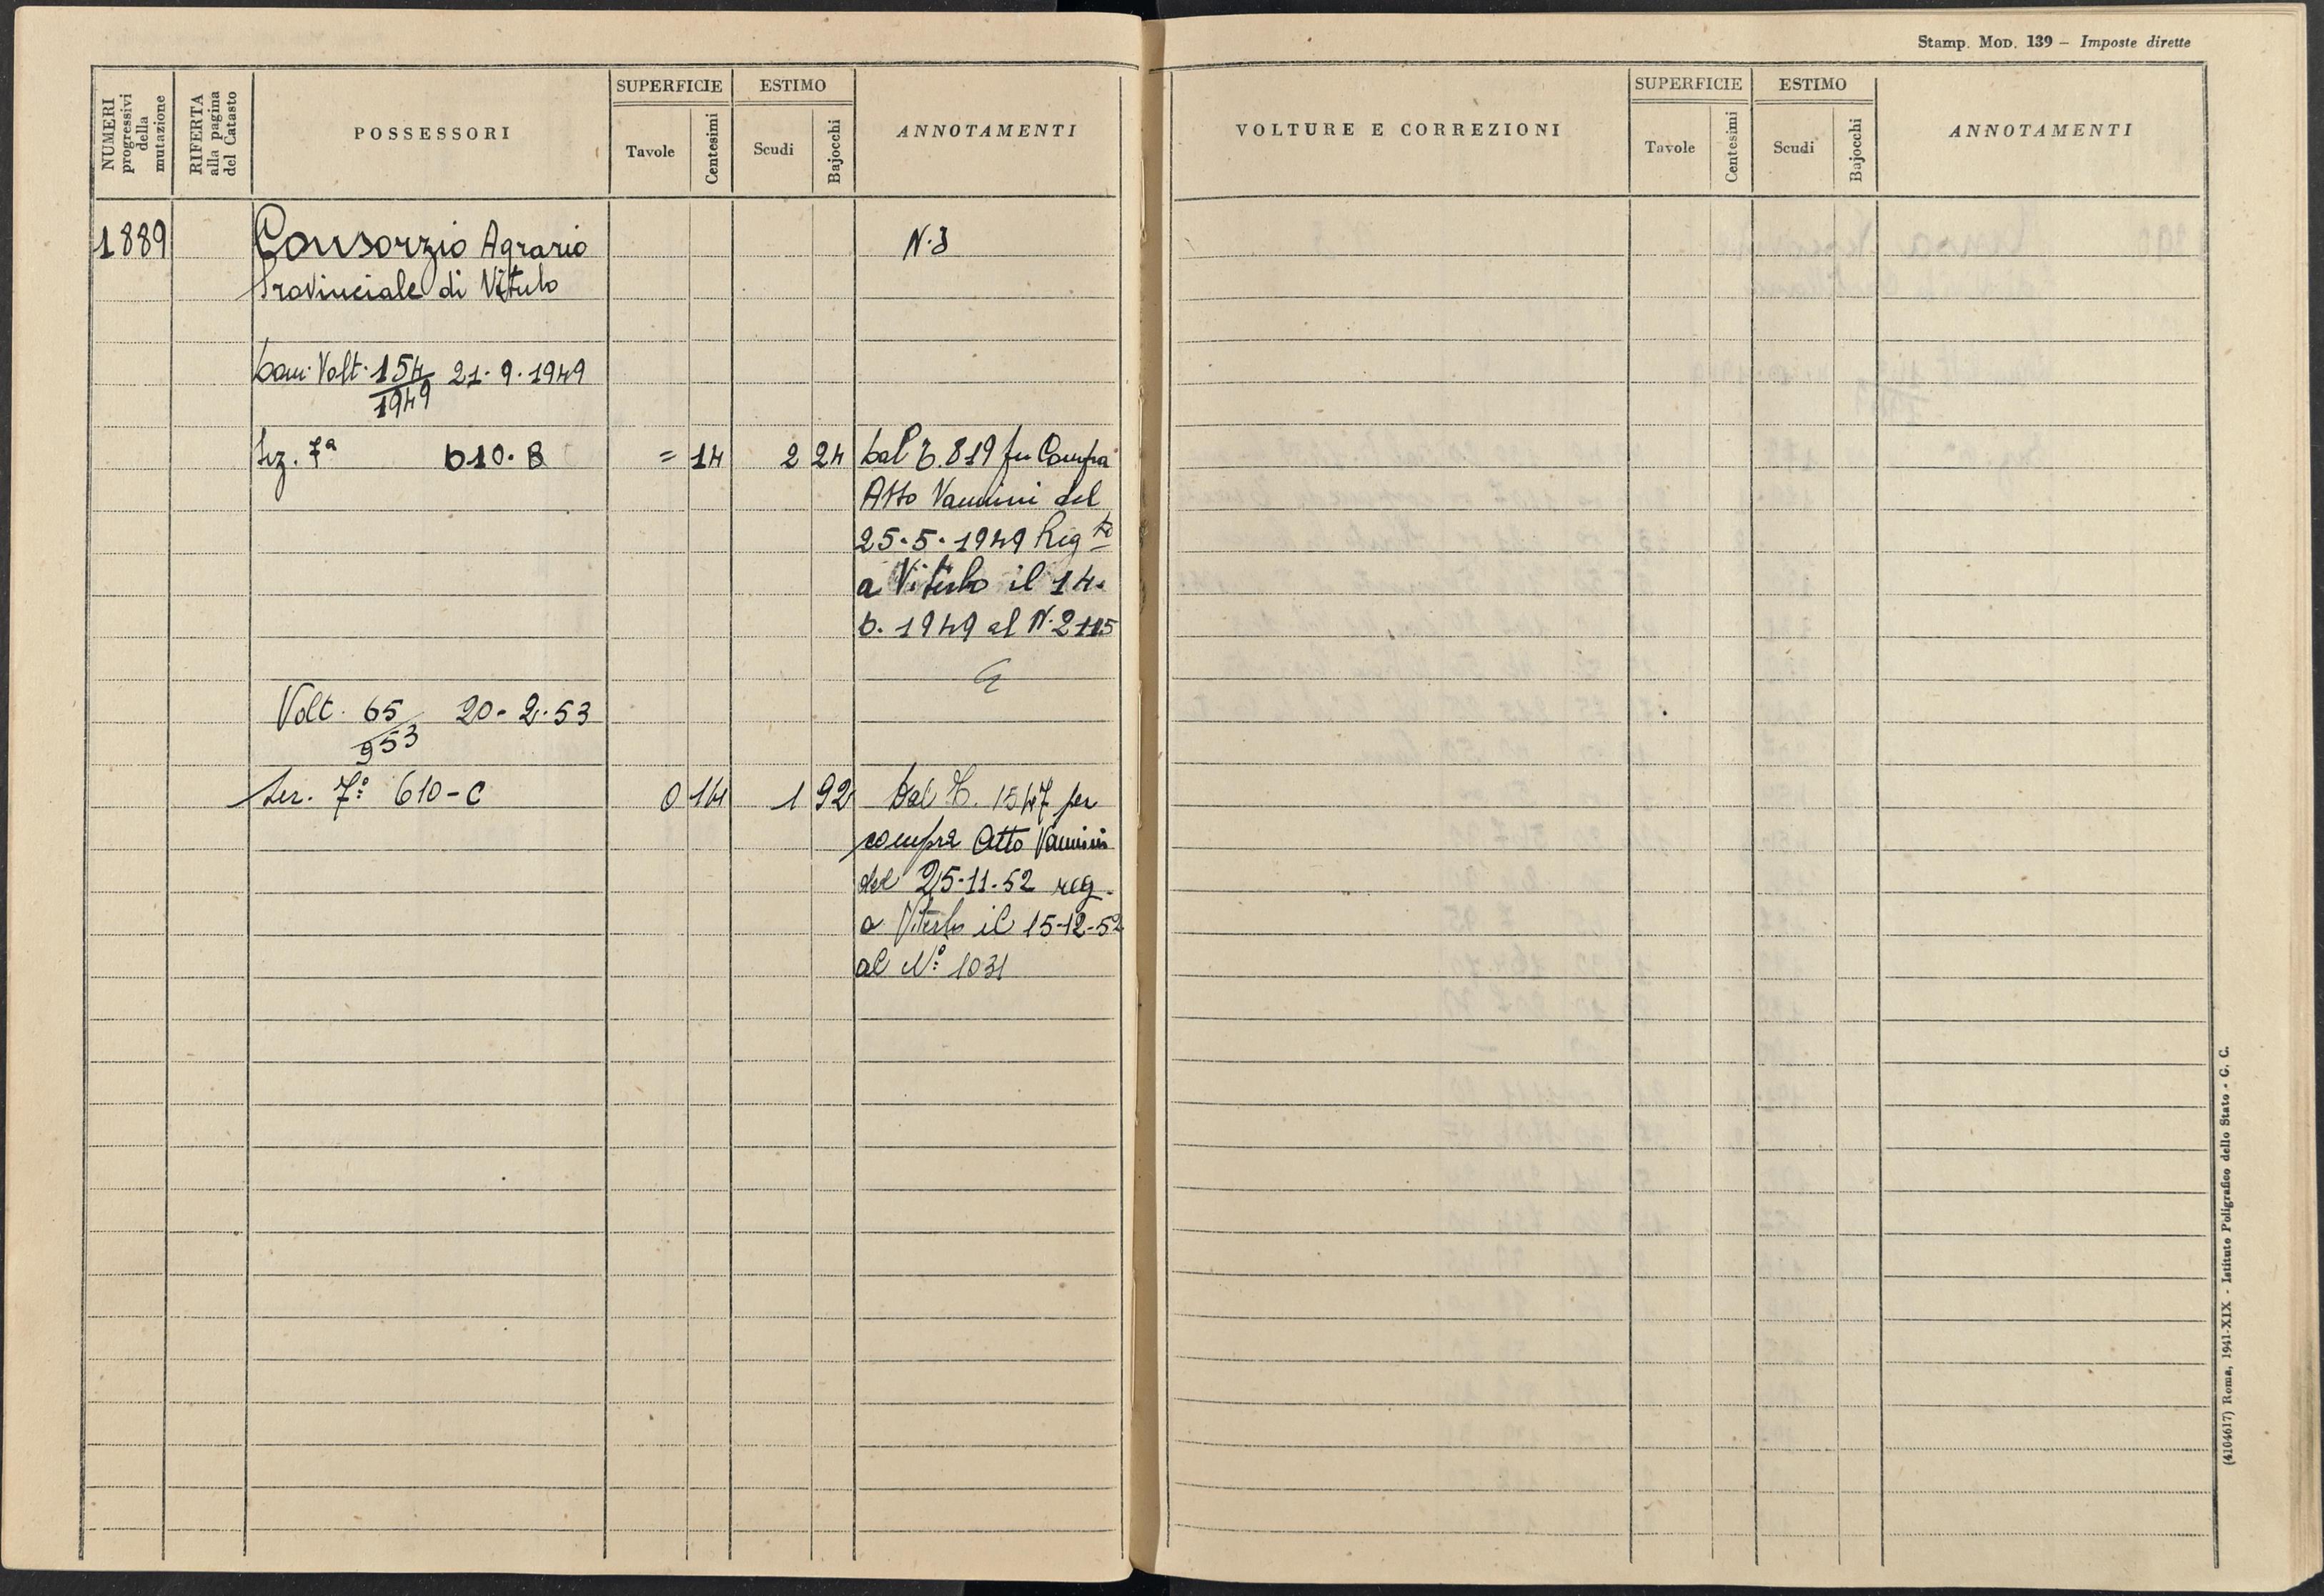 Stamp. Mod. 139 – Imposte dirette
NUMERI progressivi della mutazione
RIFERTA alla pagina del Catasto
POSSESSORI
SUPERFICIE
Tavole
Centesimi
ESTIMO
Scudi
Bajocchi
ANNOTAMENTI
VOLTURE E CORREZIONI
SUPERFICIE
Tavole
Centesimi
ESTIMO
Scudi
Bajocchi
ANNOTAMENTI
1889 Consorzio Agrario N. 3
Provinciale di Viterbo
Volt. 154/1949 21.9.1949
Sez. 7a 610.B = 14 2 24 Dal T. 819 per Compra
Atto Vannini del
25.5.1949 Regto
a Viterbo il 14.
6.1949 al N. 2115
Volt. 65/953 20-2.53
Sez. 7a 610-C 0 14 1 92 Dal T. 1547 per
compra Atto Vannini
del 25-11-52 reg.
a Viterbo il 15-12-52
al N° 1031
(4104617) Roma, 1941-XIX - Istituto Poligrafico dello Stato - G. C.